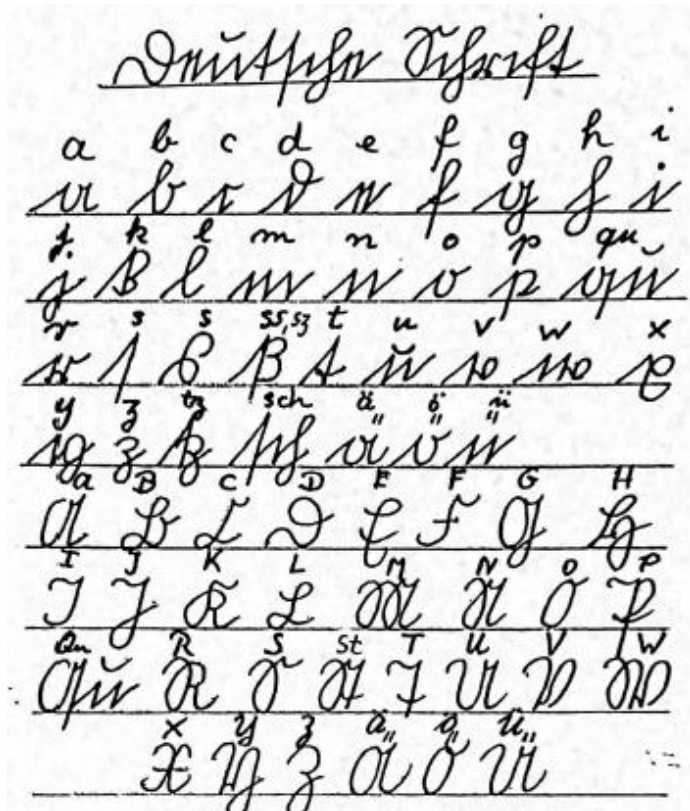 Deutsche Schrift
a b c d e f g h i
a b c d e f g h i
j k l m n o p qu
j k l m n o p qu
r s s ss,sz t u v w x
r s s ß t u v w x
y z tz sch ä ö ü
y z tz sch ä ö ü
a B C D E F G H
A B C D E F G H
I J K L M N O P
I J K L M N O P
Qu R S St T U V W
Qu R S St T U V W
X Y Z Ä Ö Ü
X Y Z Ä Ö Ü